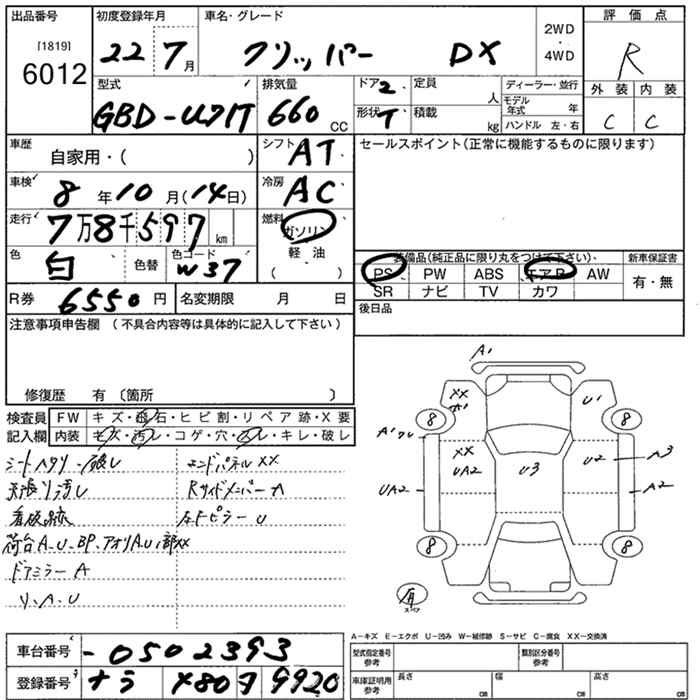 出品番号
[1819]
6012
初度登録年月
22 7月
車名・グレード
クリッパー DX
2WD
・
4WD
評価点
R
型式
GBD-U71T
排気量
660 CC
ドア 2
形状 T
定員 人
積載 kg
ディーラー・並行
モデル年式 年
ハンドル 左・右
外装 内装
C C
車歴
自家用・( )
シフト
AT
セールスポイント(正常に機能するものに限ります)
車検
8年10月(14日)
冷房
AC
走行
7万8千597 km
燃料
ガソリン
軽油
( )
色
白
色替
色コード
W37
装備品(純品正に限り丸をつけて下さい)
新車保証書
PS PW ABS エアB AW
有・無
SR ナビ TV カワ
R券 6550円
名変期限 月 日
後日品
注意事項申告欄 (不具合内容等は具体的に記入して下さい)
修復歴 有 〔箇所 〕
検査員記入欄
FW キズ・飛石・ヒビ割・リペア跡・X要
内装 キズ・汚レ・コゲ・穴・スレ・キレ・破レ
シートヘタリ・破レ
天張り汚レ
看板跡
荷台A.U.BP.アオリA.U.部XX
ドアミラーA
リ.A.U
エンドパネルXX
RサイドメンバーA
左Fピラー U
A1
XX
A1
U1
8
8
A1
XX
UA2
U3
U2
A3
UA2
A2
8
8
有
スペア
A-キズ E-エクボ U-凹み W-補修跡 S-サビ C-腐食 XX-交換済
車台番号
-0502393
登録番号
ナラ 480 ヲ 9920
型式指定番号
参考
類別区分番号
参考
車庫証明用
参考
長さ cm
幅 cm
高さ cm